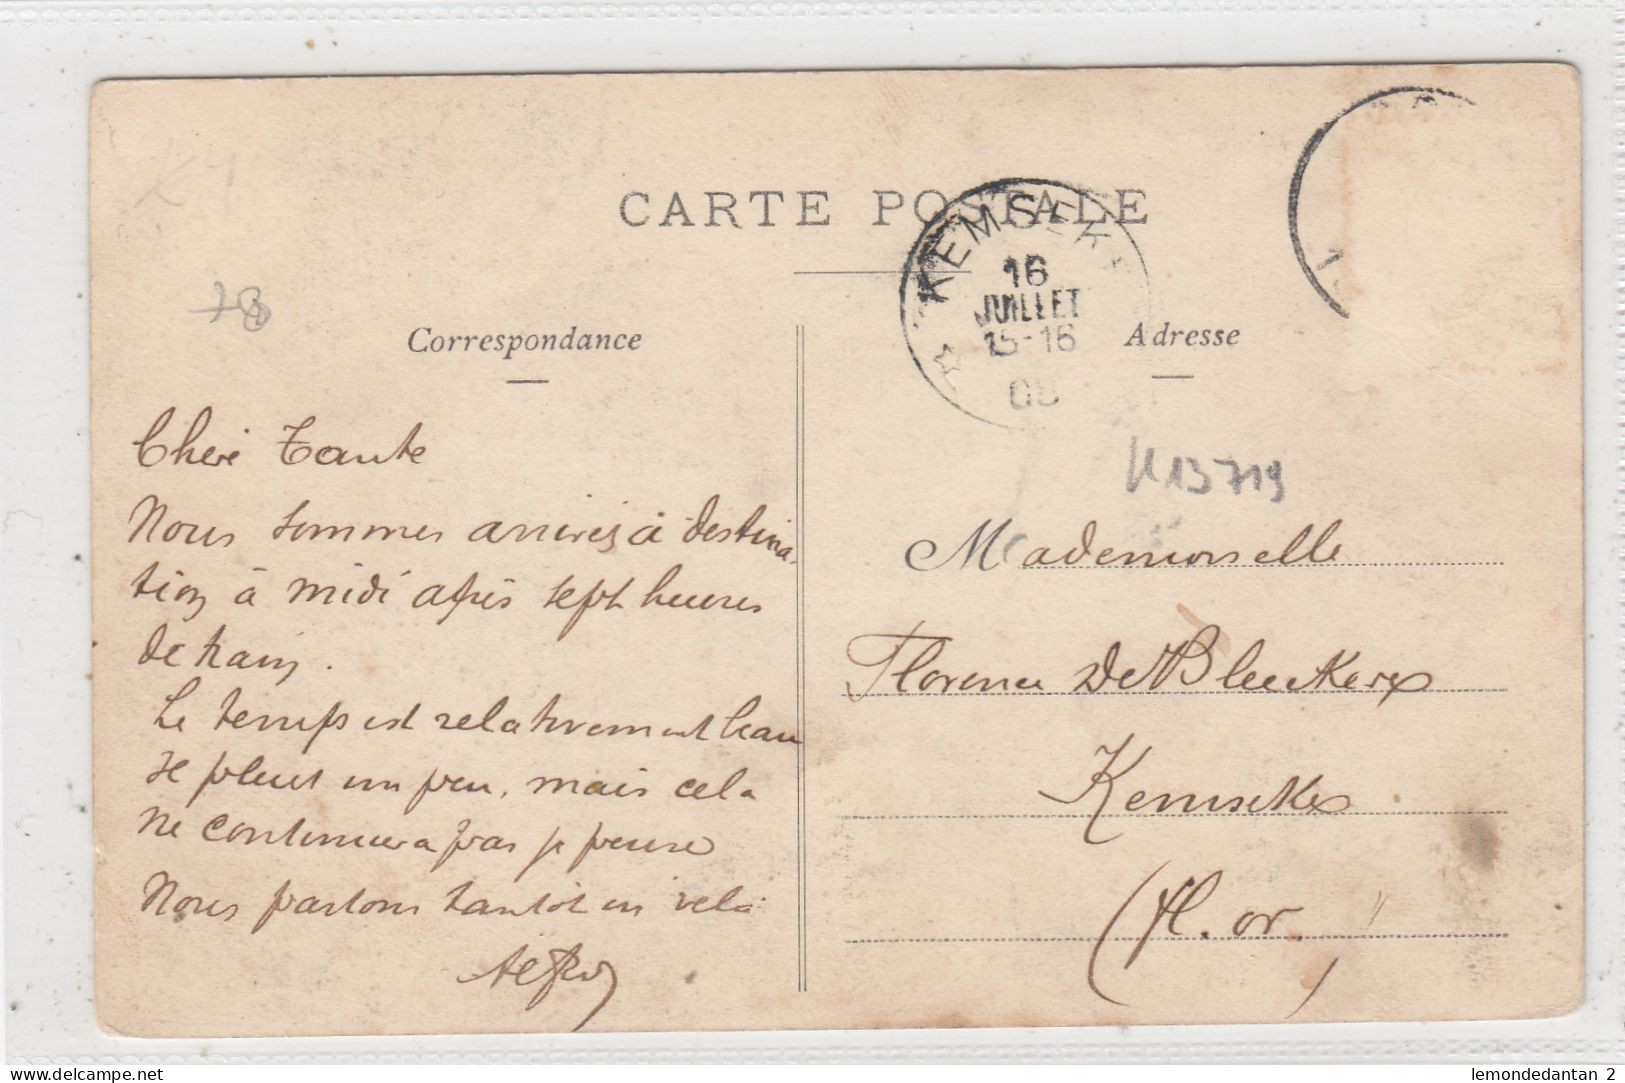 CARTE POSTALE
KEMSEKE
16
JUILLET
15-16
08
78
Correspondance
Adresse
Chère Tante
Nous sommes arrivés à destina-
tion à midi après sept heures
de train.
Le temps est relativement beau
Il pleut un peu, mais cela
ne continuera pas je pense
Nous partons tantôt en vélo
Alfred
H13719
Mademoiselle
Florence De Bleeckere
Kemseke
(fl. or.)
lemondedantan 2